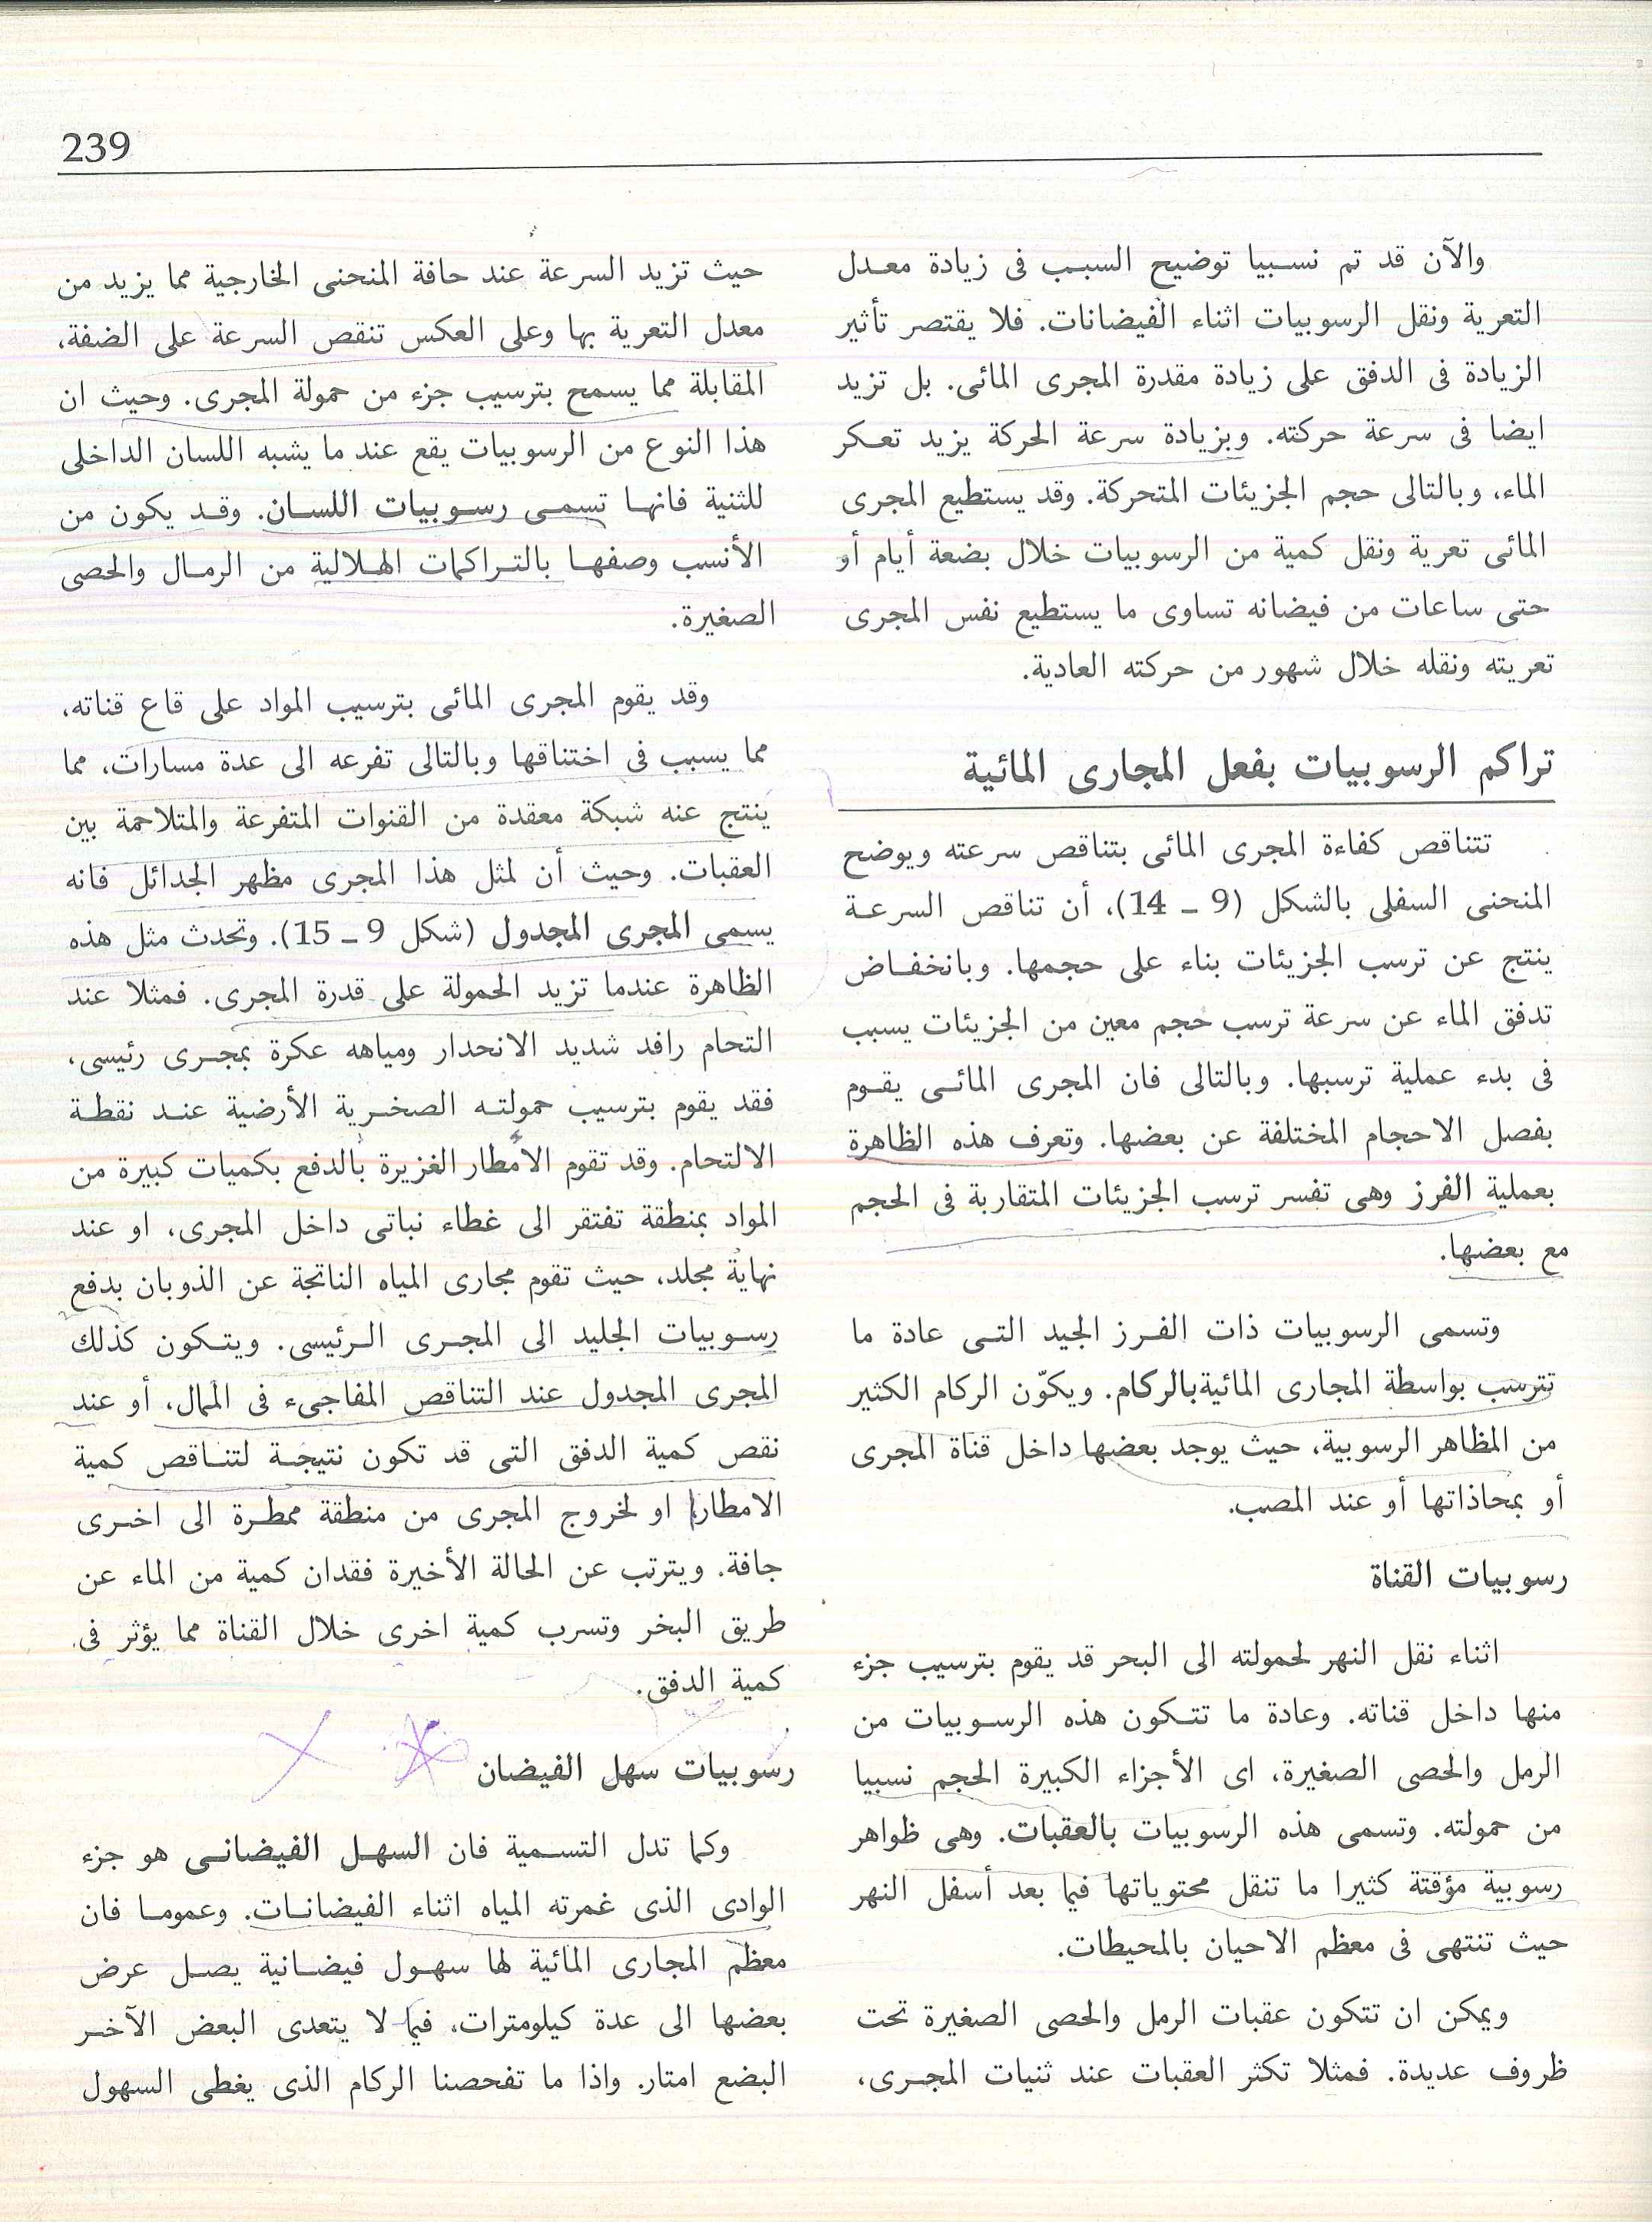 239
والآن قد تم نسبيا توضيح السبب فى زيادة معدل
التعرية ونقل الرسوبيات اثناء الفيضانات. فلا يقتصر تأثير
الزيادة فى الدفق على زيادة مقدرة المجرى المائى. بل تزيد
ايضا فى سرعة حركته. وبزيادة سرعة الحركة يزيد تعكر
الماء، وبالتالى حجم الجزيئات المتحركة. وقد يستطيع المجرى
المائى تعرية ونقل كمية من الرسوبيات خلال بضعة أيام أو
حتى ساعات من فيضانه تساوى ما يستطيع نفس المجرى
تعريته ونقله خلال شهور من حركته العادية.
تراكم الرسوبيات بفعل المجارى المائية
تتناقص كفاءة المجرى المائى بتناقص سرعته ويوضح
المنحنى السفلى بالشكل (9 ـ 14)، أن تناقص السرعة
ينتج عن ترسب الجزيئات بناء على حجمها. وبانخفاض
تدفق الماء عن سرعة ترسب حجم معين من الجزيئات يسبب
فى بدء عملية ترسبها. وبالتالى فان المجرى المائى يقوم
بفصل الاحجام المختلفة عن بعضها. وتعرف هذه الظاهرة
بعملية الفرز وهى تفسر ترسب الجزيئات المتقاربة فى الحجم
مع بعضها.
وتسمى الرسوبيات ذات الفرز الجيد التى عادة ما
تترسب بواسطة المجارى المائية بالركام. ويكوّن الركام الكثير
من المظاهر الرسوبية، حيث يوجد بعضها داخل قناة المجرى
أو بمحاذاتها أو عند المصب.
رسوبيات القناة
اثناء نقل النهر لحمولته الى البحر قد يقوم بترسيب جزء
منها داخل قناته. وعادة ما تتكون هذه الرسوبيات من
الرمل والحصى الصغيرة، اى الأجزاء الكبيرة الحجم نسبيا
من حمولته. وتسمى هذه الرسوبيات بالعقبات. وهى ظواهر
رسوبية مؤقتة كثيرا ما تنقل محتوياتها فيما بعد أسفل النهر
حيث تنتهى فى معظم الاحيان بالمحيطات.
ويمكن ان تتكون عقبات الرمل والحصى الصغيرة تحت
ظروف عديدة. فمثلا تكثر العقبات عند ثنيات المجرى،
حيث تزيد السرعة عند حافة المنحنى الخارجية مما يزيد من
معدل التعرية بها وعلى العكس تنقص السرعة على الضفة،
المقابلة مما يسمح بترسيب جزء من حمولة المجرى. وحيث ان
هذا النوع من الرسوبيات يقع عند ما يشبه اللسان الداخلى
للثنية فانها تسمى رسوبيات اللسان. وقد يكون من
الأنسب وصفها بالتراكمات الهلالية من الرمال والحصى
الصغيرة.
وقد يقوم المجرى المائى بترسيب المواد على قاع قناته،
مما يسبب فى اختناقها وبالتالى تفرعه الى عدة مسارات، مما
ينتج عنه شبكة معقدة من القنوات المتفرعة والمتلاحمة بين
العقبات. وحيث أن لمثل هذا المجرى مظهر الجدائل فانه
يسمى المجرى المجدول (شكل 9 ـ 15). وتحدث مثل هذه
الظاهرة عندما تزيد الحمولة على قدرة المجرى. فمثلا عند
التحام رافد شديد الانحدار ومياهه عكرة بمجرى رئيسى،
فقد يقوم بترسيب حمولته الصخرية الأرضية عند نقطة
الالتحام. وقد تقوم الأمطار الغزيرة بالدفع بكميات كبيرة من
المواد بمنطقة تفتقر الى غطاء نباتى داخل المجرى، او عند
نهاية مجلد، حيث تقوم مجارى المياه الناتجة عن الذوبان بدفع
رسوبيات الجليد الى المجرى الرئيسى. ويتكون كذلك
المجرى المجدول عند التناقص المفاجىء فى الممال، أو عند
نقص كمية الدفق التى قد تكون نتيجة لتناقص كمية
الامطار، او لخروج المجرى من منطقة ممطرة الى اخرى
جافة. ويترتب عن الحالة الأخيرة فقدان كمية من الماء عن
طريق البخر وتسرب كمية اخرى خلال القناة مما يؤثر فى
كمية الدفق.
رسوبيات سهل الفيضان
وكما تدل التسمية فان السهل الفيضانى هو جزء
الوادى الذى غمرته المياه اثناء الفيضانات. وعموما فان
معظم المجارى المائية لها سهول فيضانية يصل عرض
بعضها الى عدة كيلومترات، فيما لا يتعدى البعض الآخر
البضع امتار. واذا ما تفحصنا الركام الذى يغطى السهول